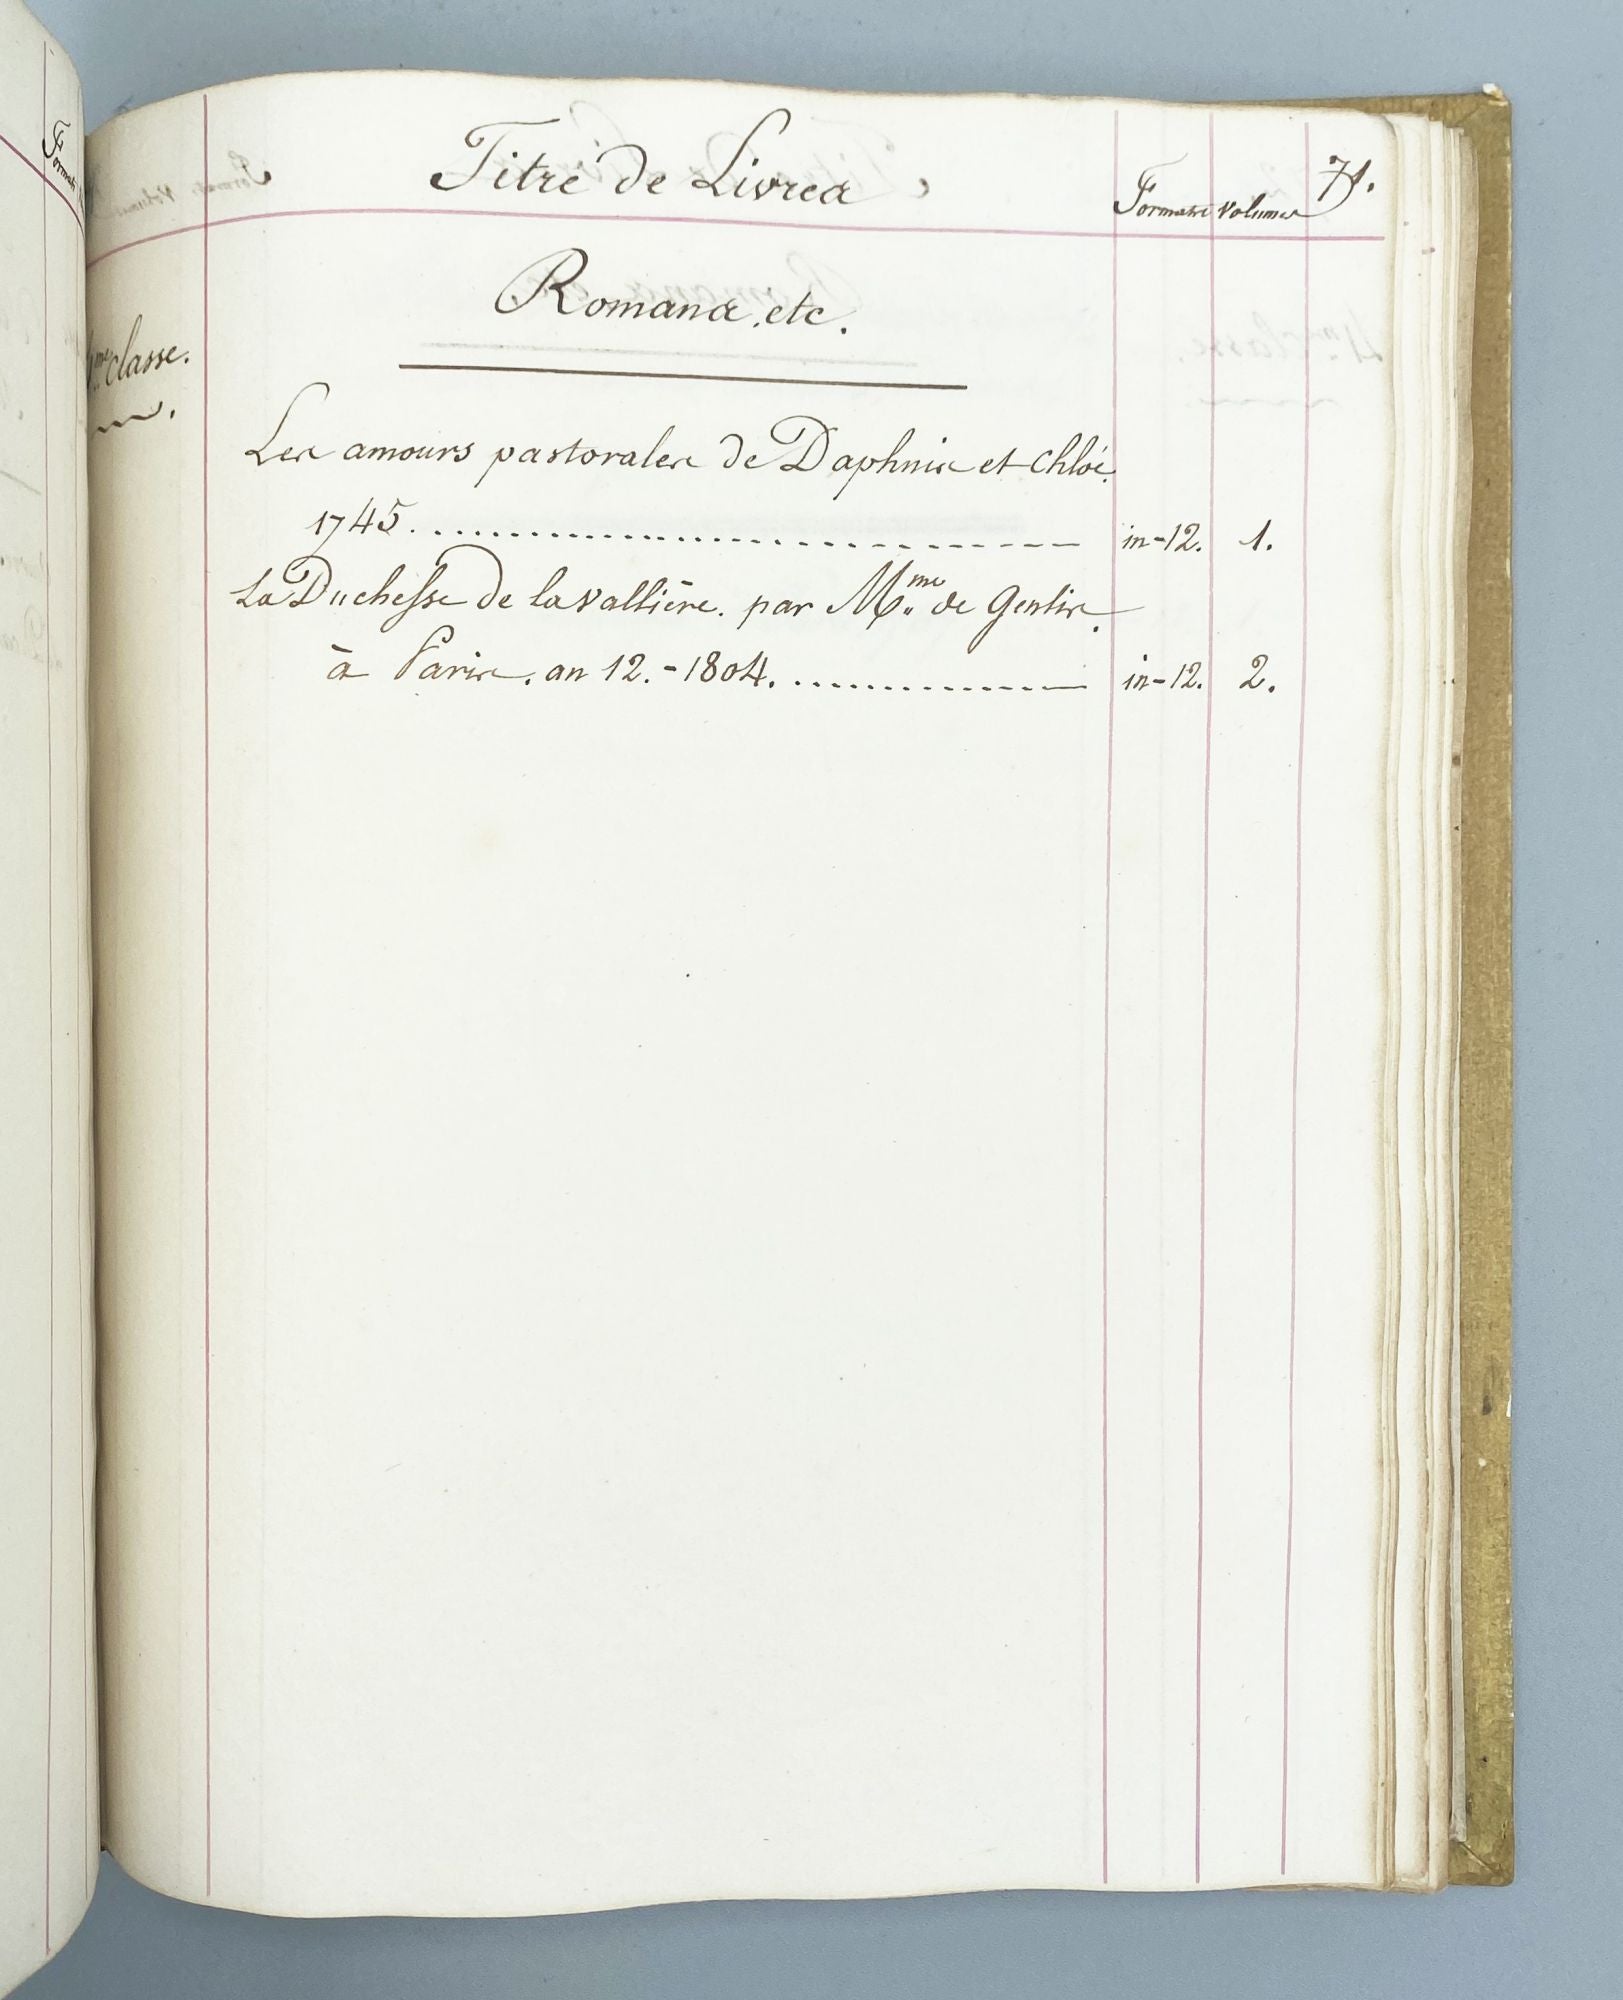 Titre de Livres
Formats
volumes
71.
Romans, etc.
me classe.
Les amours pastorales de Daphnis et Chloé.
1745. in-12. 1.
La Duchesse de la Vallière. par Mme de Genlis.
à Paris. an 12. - 1804. in-12. 2.
Formats